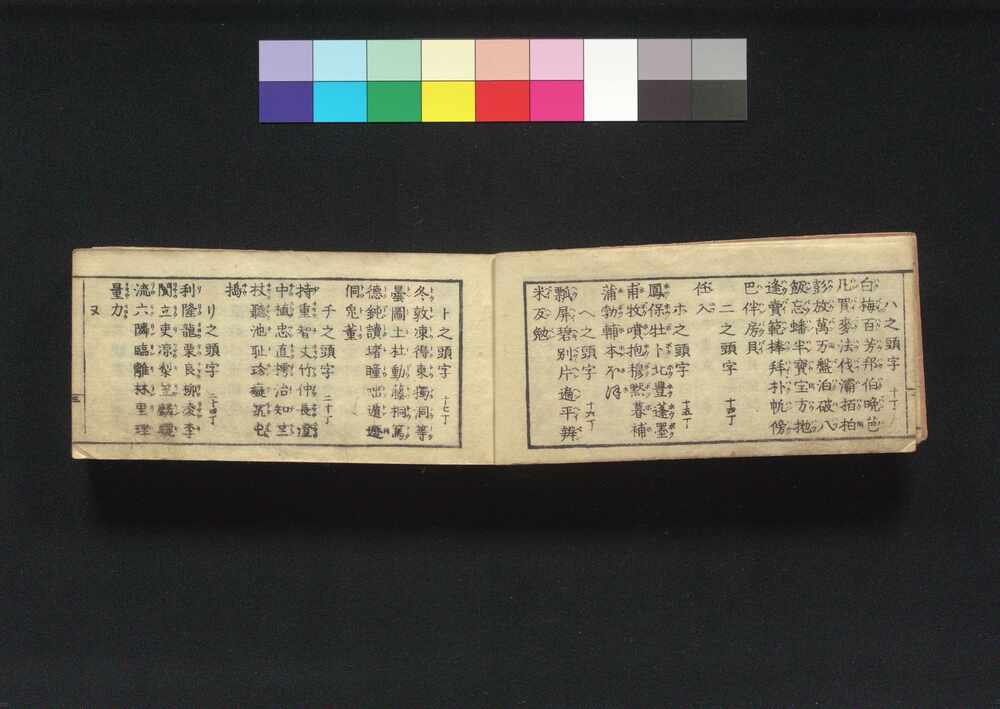 ハ之頭字 十丁
白梅百芳邦伯晩芭
凡買麥法伐灞拍柏
彭放萬万盤泊破八
飯忘蟠半寶宝方抛
逢賣範捧拜朴帆傍
巴伴房貝
二之頭字 十四丁
任入
ホ之頭字 十五丁
鳳保牡卜北豊蓬墨
甫牧噴抱穆黙暮補
蒲勃輔本不
ヘ之頭字 十六丁
瓢屏碧別片遍平辨
米反勉
ト之頭字 十七丁
冬敦凍得東獨洞等
曇圖土杜動藤桐篤
德鈍讀堵瞳出遁
侗兜董
チ之頭字 二十丁
持重智丈竹仲長澄
中植忠直摶治知竺
杖聽池耻珍癡苧屯
搗
リ之頭字 二十四丁
利隆龍栗良柳凌李
閬立吏凉梨笠麟
流六隣臨離林里理
量力
ヌ
三